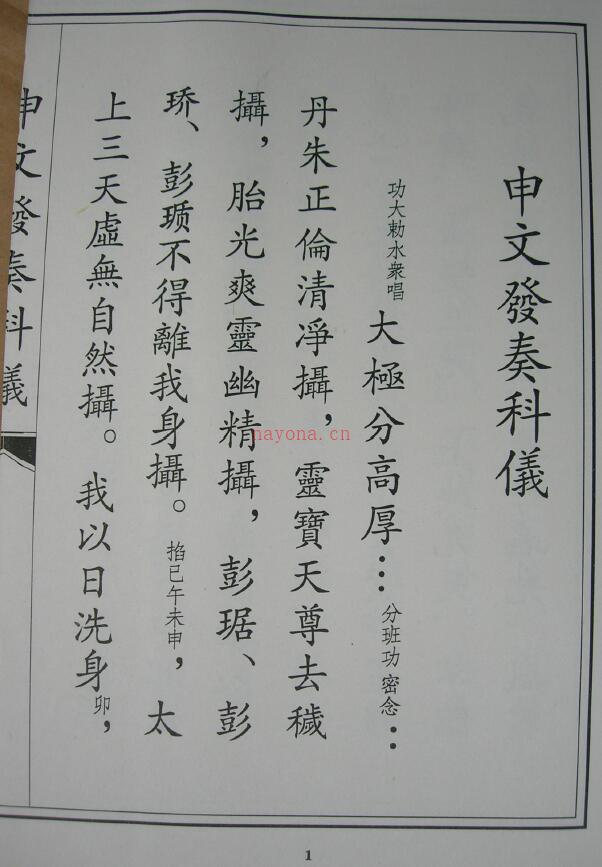 申文發奏科儀
功大勅水衆唱大極分高厚⋯分班功密念：
丹朱正倫清淨攝，靈寶天尊去穢
攝，胎光爽靈幽精攝，彭琚、彭
、彭不得離我身攝。掐巳午未申，太
上三天虛無自然攝。我以日洗身卯，
申文發奏科儀
nayona.cn
1